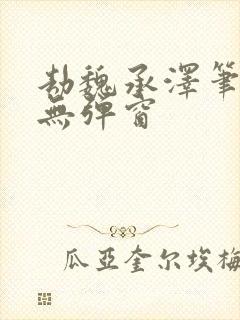 劫魏承澤筆
無彈窗
瓜亞奎尔埃梅